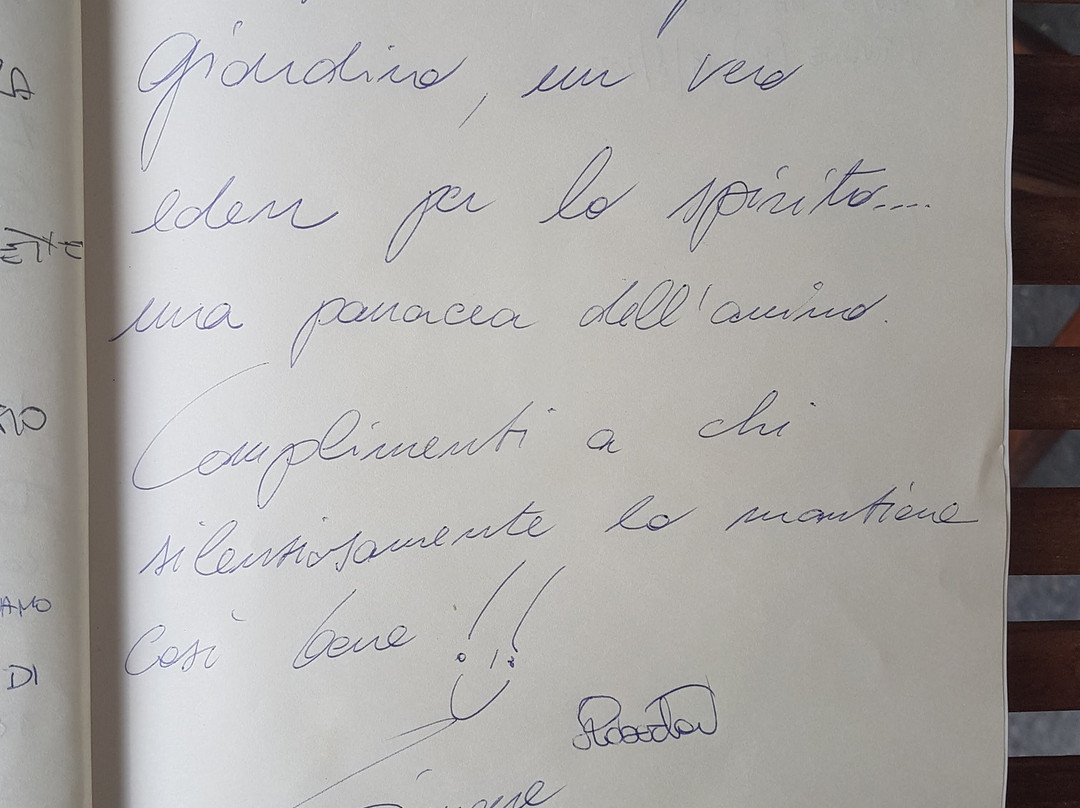 Giardino, un vero
eden per lo spirito....
una panacea dell'animo.
Complimenti a chi
silenziosamente lo mantiene
così bene !!
AMO
DI